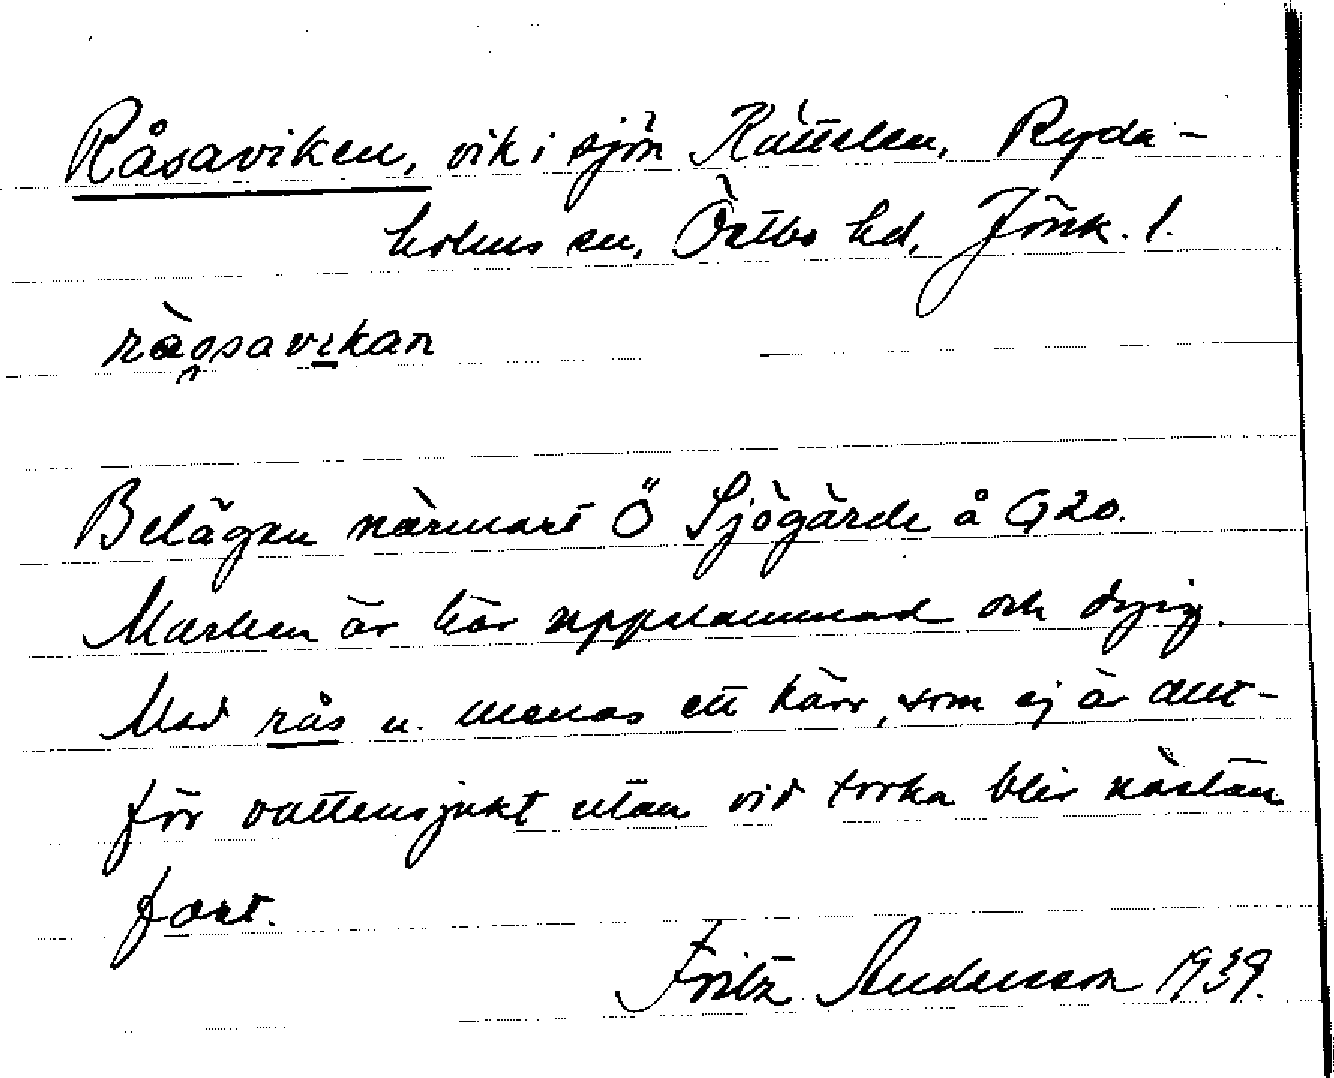 Råsaviken, vik i sjön Rusken, Ryda-
holms sn, Östbo hd, Jönk. l.
rågsavikan
Belägen närmast Ö Sjögärde å G20.
Marken är här uppslammad och dyig.
Med rås n. menas ett kärr, som ej är allt-
för vattensjukt utan vid torka blir nästan
fast.
Fritz Andersson 1939.